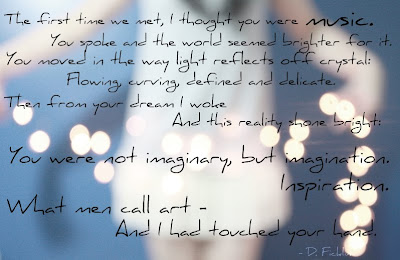 The first time we met, I thought you were music.
You spoke and the world seemed brighter for it.
You moved in the way light reflects off crystal:
Flowing, curving, defined and delicate.
Then from your dream I woke
And this reality shone bright:
You were not imaginary, but imagination.
Inspiration.
What men call art -
And I had touched your hand.
- D.